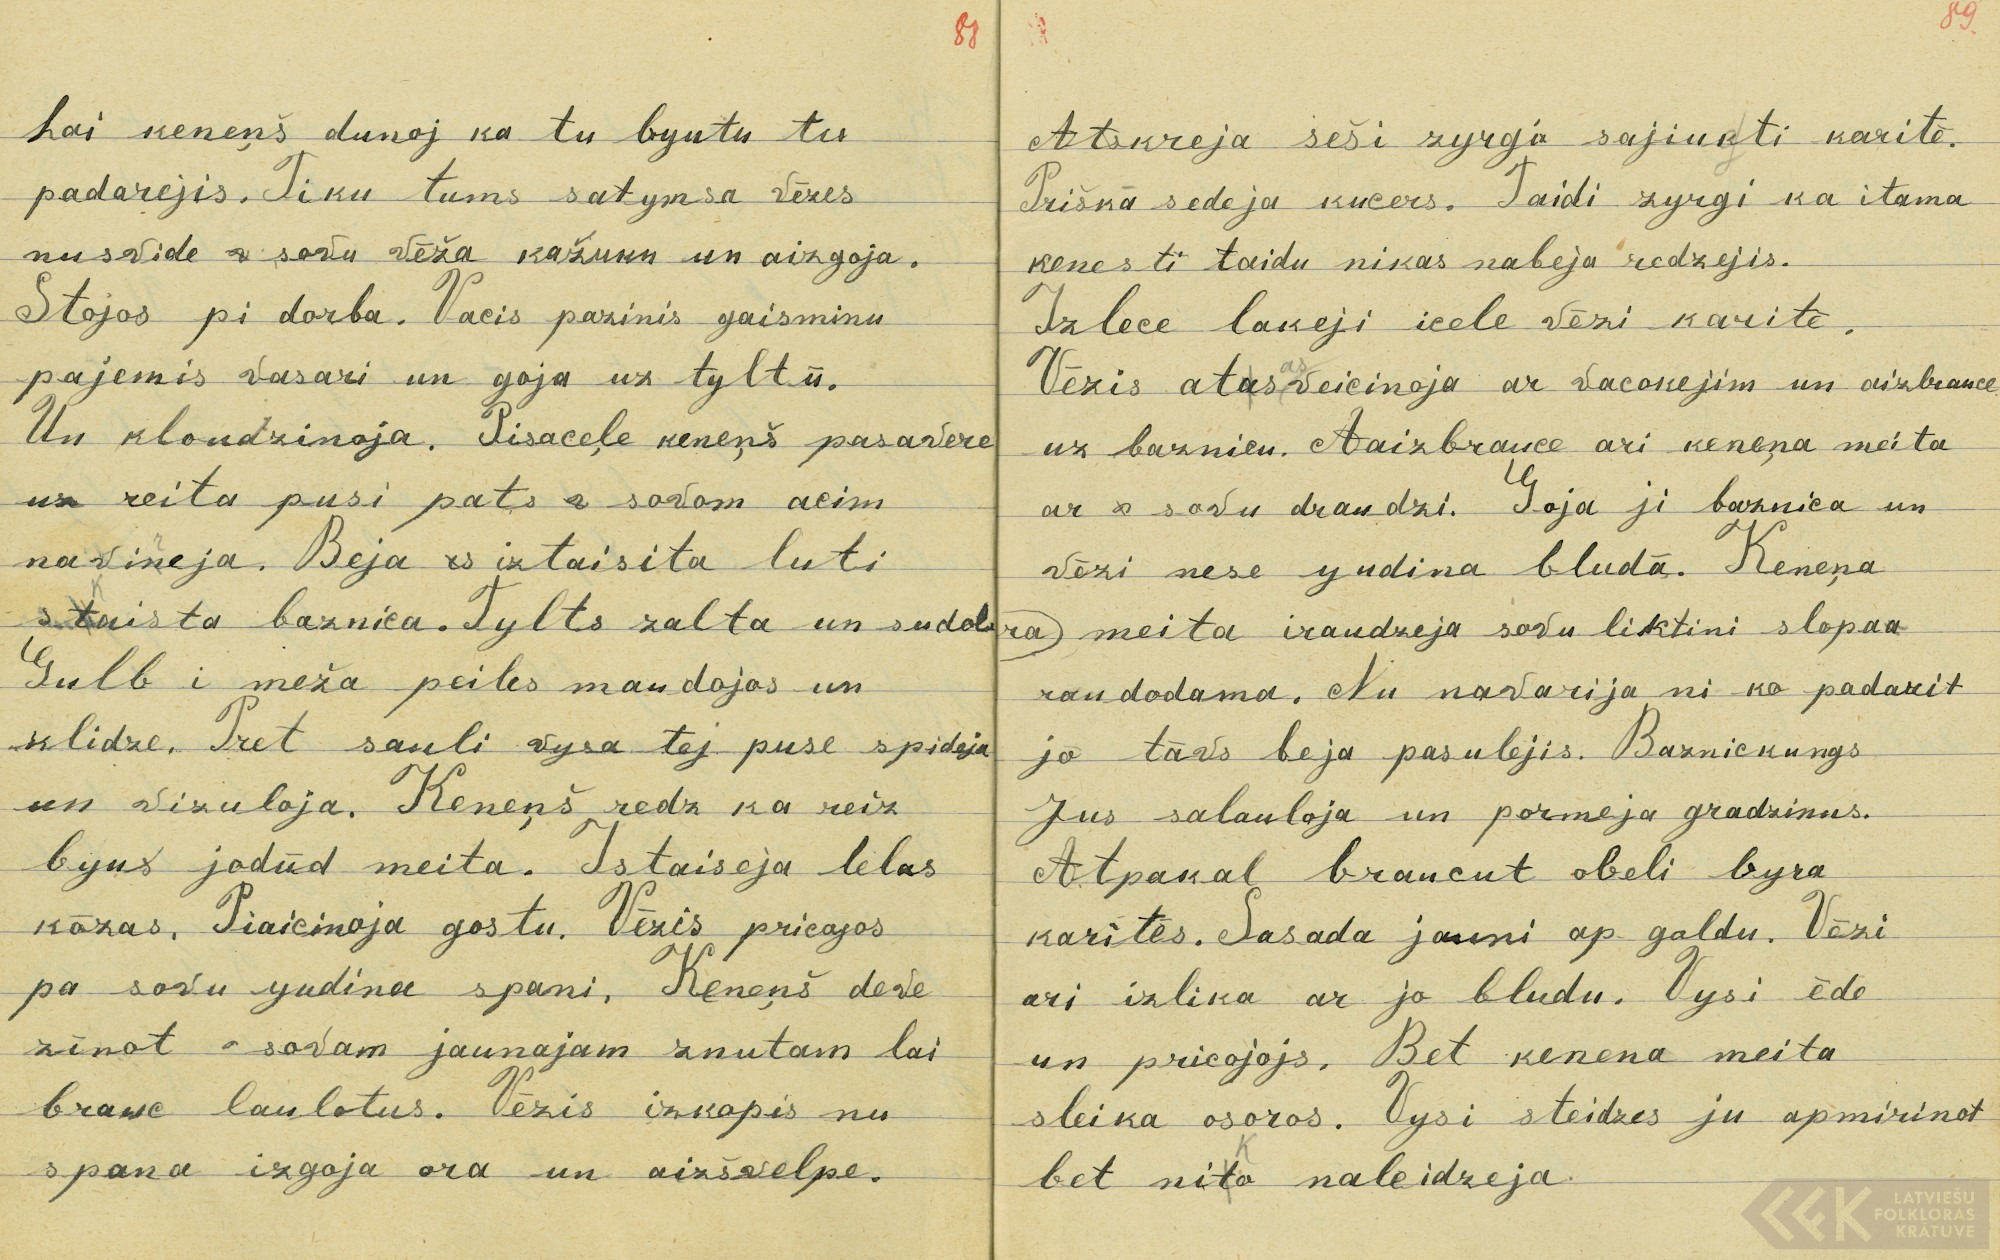 88
lai keneņš dunoj ka tu byutu tu
padarejis. Tiku tums satymsa vēzes
nusvide sovu vēža kažuku un aizgoja.
Stojos pi dorba. Vacis pazinis gaisminu
pajemis vasari un goja uz tyltū.
Un kloudzinoja. Pisaceļe keneņš pasavere
uz reita pusi pats sovom acim
navineja. Beja iztaisita luti
skaista baznica. Tylts zalta un sudobra
Gulb i meža peiles maudojos un
klidze. Pret sauli vysa tej puse spideja
un vizuloja. Keneņš redz ka reiz
byus jodūd meita. Istaiseja lelas
kāzas. Piaicinoja gostu. Vēzis pricojos
pa sovu yudina spani. Keneņš deve
zīnot sovam jaunajam znutam lai
brauc laulotus. Vēzis izkopis nu
spana izgoja ora un aizšvelpe.
89
Atskreja seši zyrga sajiukti karitē.
Priškā sedeja kucers. Taidi zyrgi ka itama
kenesti taidu nikas nabeja redzejis.
Izlece lakeji icele vēzi karitē.
Vēzis atasveicinoja ar vacokejim un aizbrauce
uz baznicu. Aaizbrauce ari keneņa meita
ar sovu draudzi. Goja ji baznica un
vēzi nese yudina bludā. Keneņa
meita iraudzeja sovu liktini slopaa
raudodama. Nu navarija ni ko padarit
jo tāvs beja pasulejis. Baznickungs
Jus salauloja un pormeja gradzinus.
Atpakal braucut obeli byra
karitēs. Sasada jauni ap goldu. Vēzi
ari izlika ar jo bludu. Vysi ēde
un pricojojs. Bet kenena meita
sleika osoros. Vysi steidzes ju apmirinot
bet niko naleidzeja.
LATVIEŠU
FOLKLORAS
KRĀTUVE